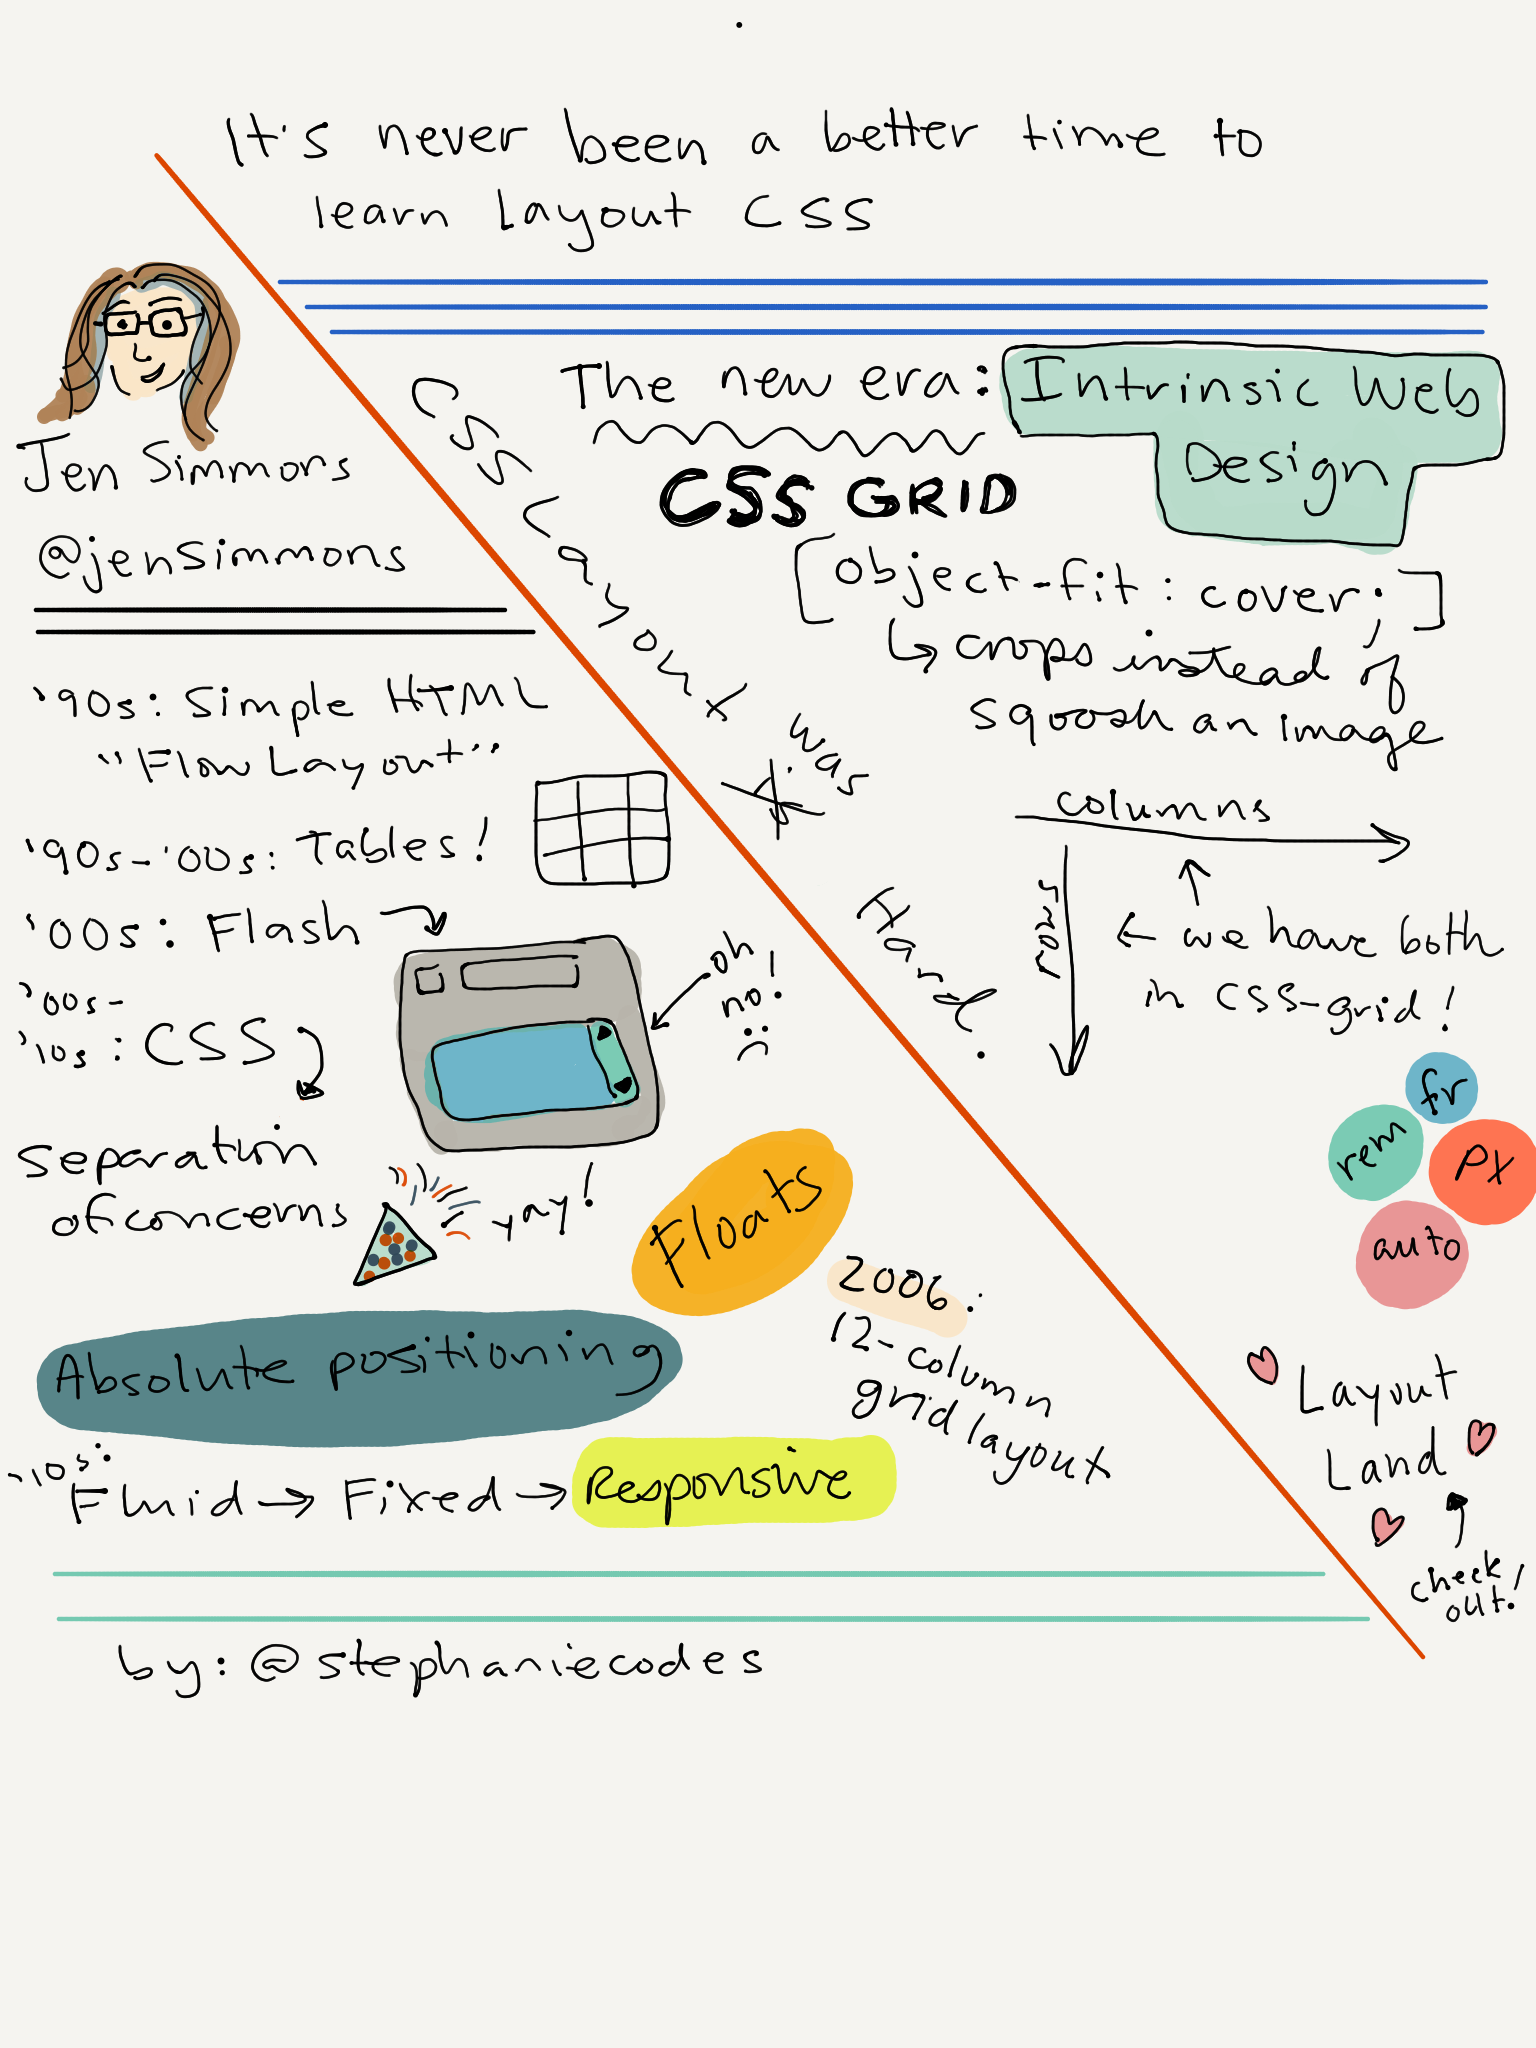 It's never been a better time to
learn Layout CSS
Jen Simmons
@jensimmons
'90s: Simple HTML
"Flow Layout"
'90s-'00s: Tables!
'00s: Flash
oh
no!
'00s-
'10s: CSS
separation
of concerns
yay!
Floats
Absolute positioning
2006:
12-column
grid layout
'10s:
Fluid → Fixed → Responsive
CSS Layout was
Hard.
The new era: Intrinsic Web
Design
CSS GRID
[object-fit: cover;]
↳ crops instead of
squoosh an image
columns
rows
← we have both
in CSS-grid!
fr
rem
px
auto
Layout
Land
check
out!
by: @stephaniecodes